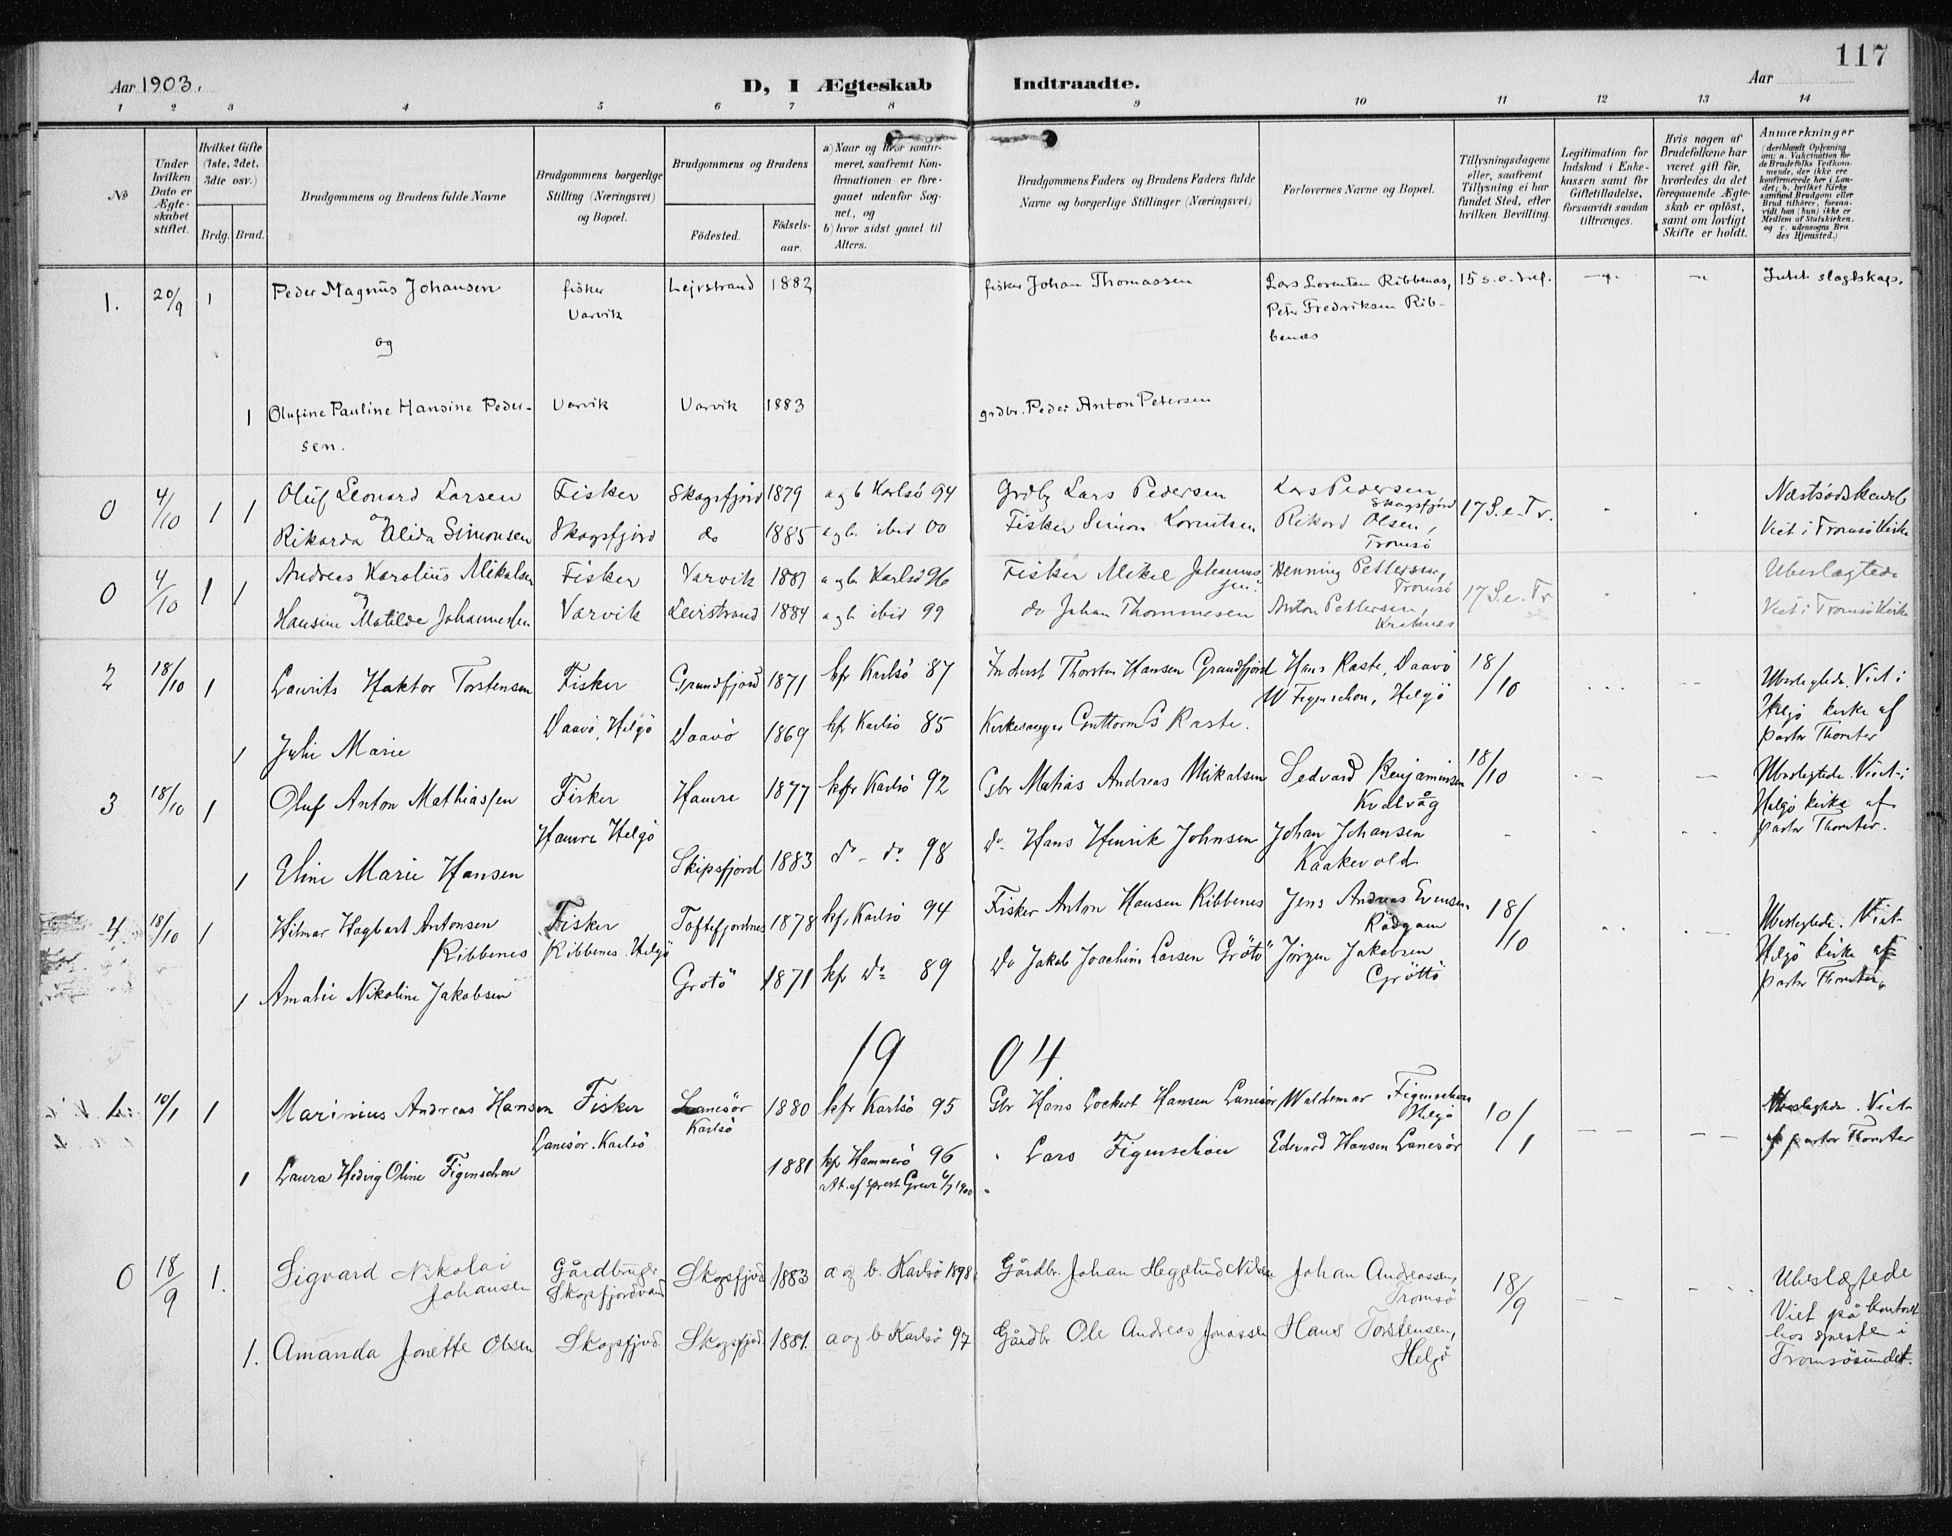 117
Aar 1903.
D, I Ægteskab Indtraadte.
Aar
1 2 3 4 5 6 7 8 9 10 11 12 13 14
№
Under hvilken Dato er Ægteskabet stiftet.
Hvilket Gifte (1ste, 2det, 3die osv.)
Brdg. Brud.
Brudgommens og Brudens fulde Navne
Brudgommens borgerlige Stilling (Næringsvei) og Bopæl.
Brudgommens og Brudens
Födested. Födselsaar.
a) Naar og hvor konfirmeret, saafremt Konfirmationen er foregaaet udenfor Sognet, og
b) hvor sidst gaaet til Alters.
Brudgommens Faders og Brudens Faders fulde Navne og borgerlige Stillinger (Næringsvei)
Forlovernes Navne og Bopæl.
Tillysningsdagene eller, saafremt Tillysning ei har fundet Sted, efter hvilken Bevilling.
Legitimation for Indskud i Enkekassen samt for Giftetilladelse, forsaavidt saadan tiltrænges.
Hvis nogen af Brudefolkene har været gift för, hvorledes da det foregaaende Ægteskab er oplöst, samt om lovligt Skifte er holdt.
Anmærkninger (deriblandt Oplysning om: a. Vakcination for de Brudefolks Vedkommende, der ikke ere konfirmerede her i Landet; b. hvilket Kirkesamfund Brudgom eller Brud tilhörer, forsaavidt han (hun) ikke er Medlem af Statskirken, og c. udensogns Brudes Hjemsted.)
1. 20/9 1 Peder Magnus Johansen fisker Lejrstrand 1882 fisker Johan Thomassen Lars Lorenten Ribbenæs, 15 s.e. tref. Intet slagtskap.
Varvik Peter Fredriksen Rib-
og benæs
1 Olufine Pauline Hansine Peder- Varvik Varvik 1883 grdbr. Peder Anton Petersen
sen.
0 4/10 1 1 Oluf Leonard Larsen Fisker Skogsfjord 1879 a g b Karlsö 94 Grdbr Lars Pedersen Lars Pedersen Skogsfjord 17 S.e.Tr. Næstsödskendeb
og
Rikarda Alida Simonsen Skogsfjord do 1885 a g b ibid 00 Fisker Simon Lorentsen Rikard Olsen, Tromsö Viet i Tromsö Kirke
0 4/10 1 1 Andreas Karolius Mikalsen Fisker Varvik 1881 a g b Karlsö 96 Fisker Mikal Johannessen Henning Pettersen, Tromsö 17 S.e.Tr Ubeslægtede
og
Hansine Matilde Johannessen Varvik Levistrand 1884 a g b ibid 99 do Johan Thommesen Anton Pettersen, Viet i Tromsö Kirke
2 18/10 1 Laurits Haktor Torstensen Fisker Grundfjord 1871 kfr Karlsö 87 Inderst Thorsten Hansen Grundfjord Hans Raste, Daavö 18/10 Ubeslegtede. Viet i
W Figenschou, Helgö Helgö kirke af
1 Julie Marie Daavö, Helgö Daavö 1869 kfr Karlsö 85 Kirkesanger Guttorm S Raste. pastor Thomter
3 18/10 1 Oluf Anton Mathiassen Fisker Hamre 1877 kfr Karlsö 92 Gbr Matias Andreas Mikalsen Sedvard Benjaminsen Kvalvåg 18/10 Ubeslegtede. Viet i
Hamre Helgö Helgö kirke af
1 Eline Marie Hansen Skipsfjord 1883 do - do. 98 do. Hans Henrik Johnsen Johan Johansen Kaakevold pastor Thomter.
4 18/10 1 Hilmar Hagbart Antonsen Ribbenes Fisker Ribbenes. Helgö Toftefjordnes 1878 kfr Karlsö 94 Fisker Anton Hansen Ribbenes Jens Andreas Evensen 18/10 Ubeslegtede. Viet
Helgö kirke af
1 Amalie Nikoline Jakobsen Grotö 1871 kfr do 89 do Jakob Joachim Larsen Grötö Jörgen Jakobsen Gröttö pastor Thomter.
1904
1. 10/1 1 Marinius Andreas Hansen Fisker Lanesör Karlsö 1880 kfr Karlsö 95 Gbr Hans Lockert Hansen Lanesör Waldemar Figenschou Helgö 10/1 Ubeslegtede. Viet
1 Laura Hedvig Oline Figenschou Lanesör. Karlsö 1881 kfr Hammerö 96 " Lars Figenschou Edvard Hansen Lanesör af pastor Thomter
0 18/9 1. Sigvard Nikolai Johansen Gårdbruger Skogsfjordvand Skogsfjord 1883 a og b. Karlsö 1898. Gårdbr. Johan Heggelund Nilsen Johan Andreassen, Tromsö 18/9 Ubeslægtede
Viet på kontoret
1. Amanda Jonette Olsen Skogsfjord Skogsfjord 1881. a og b Karlsö 97 Gårdbr Ole Andreas Jonassen Hans Torstensen, Helgö hos presten i
Tromsösundet.